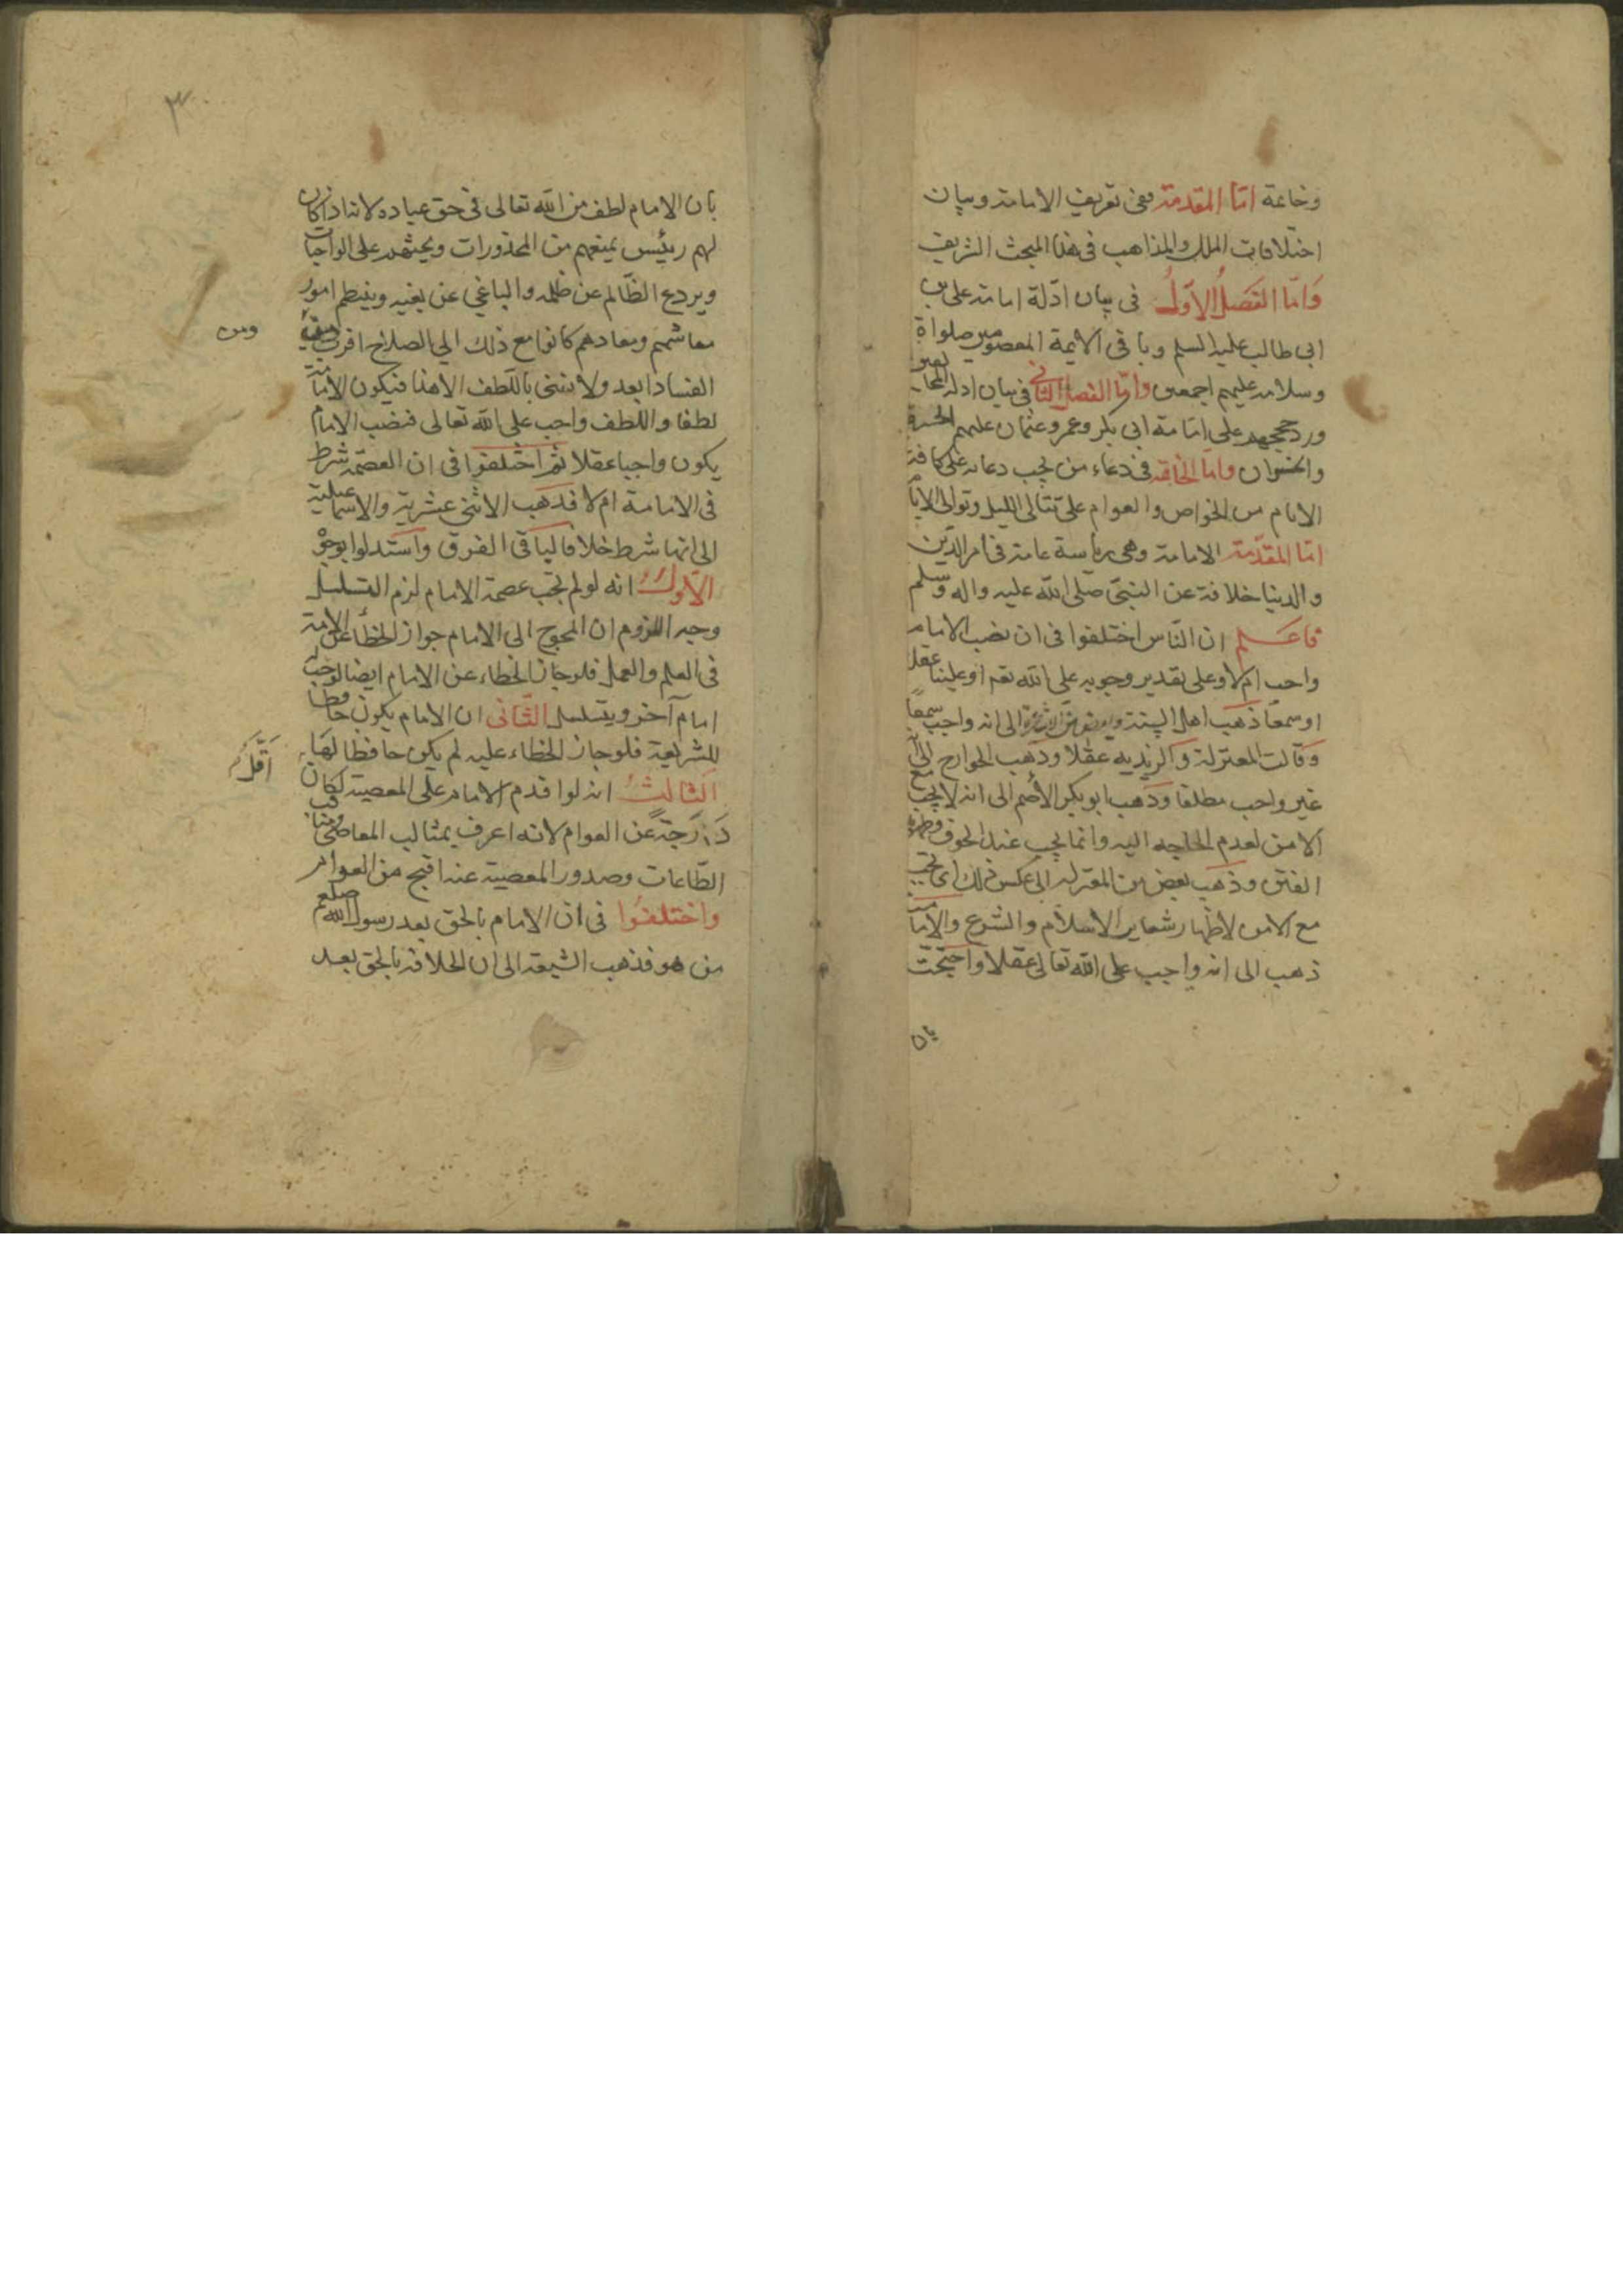 وخاتمة اما المقدمة ففى تعريف الامامة وبيان
اختلافات الملل والمذاهب فى هذا المبحث الشريف
وَامّا الفَصلُ الاوّلُ فى بيان ادّلة امامة على بن
ابى طالب عليه السلم وباقى الايمة المعصومين صلواة
وسلامه عليهم اجمعين وامّا الفصل الثانى فى بيان ادلة المخالفين
ورد حججهم على امامة ابى بكر وعمر وعثمان عليهم الحسرة
والخسران واما الخاتمة فى دعاء من يجب دعائه على كافة
الانام من الخواص والعوام على تتالى الليل وتوالى الايام
امّا المقدّمة الامامة وهى رياسة عامة فى امر الدّين
والدنيا خلافة عن النبىّ صلى الله عليه واله وسلم
فاعلم ان النّاس اختلفوا فى ان نصب الامام
واجب ام لا وعلى تقدير وجوبه على الله تعم او علينا عقلا
او سمعًا ذهَب اهل السنة وبعض من الى انه واجب سمعًا
وقالت المعتزلة والزيديه عقلا وذهب الخوارج الى انّه
غير واجب مطلقا وذهب ابو بكر الأصم الى انه لا يجب مع
الامن لعدم الحاجه اليه وانما يجب عند الخوف وظهور
الفتن وذهَب بعض من المعتزله الى عكس ذلك اى تجب
مع الامن لاظهار شعاير الاسلام والشرع والامامية
ذهب الى انه واجب على الله تعالى عقلا واحتجّت
بان
٣
بان الامام لطف من الله تعالى فى حق عباده لانه اذا كان
لهم رئيس يمنعهم من المحذورات ويحثهم على الواجبات
ويردع الظّالم عن ظلمه والباغى عن بغيه وينتظم امور
معاشهم ومعادهم كانوا مع ذلك الى الصلاح اقرب
ومن
الفساد ابعد ولا نعنى باللّطف الا هذا فيكون الامامة
لطفا واللطف واجب على الله تعالى فنصب الامام
يكون واجبا عقلا ثم اختلفوا فى ان العصمة شرط
فى الامامة ام لا فذهَب الاثنى عشرية والاسماعيلية
الى انها شرط خلافا لباقى الفرق واستدلوا بوجوه
الاوّل انه لو لم تجب عصمة الامام لزم التسلسل
وجه اللزوم ان المحوج الى الامام جواز الخطأ على الامة
فى العلم والعمل فلو جاز الخطاء عن الامام ايضا لوجب
امام آخر ويتسلسل الثّانى ان الامام يكون حافظا
للشريعة فلو جاز الخطاء عليه لم يكن حافظا لها
الثالثُ انه لو اقدم الامام على المعصية لكان
اَقَلَّ
دَرَجَةً عن العوام لانه اعرف بمثالب المعاصى ومناقب
الطّاعات وصدور المعصية عنه اقبح من العوام
واختلفُوا فى ان الامام بالحق بعد رسول الله صلعم
من هو فذهب الشيعة الى ان الخلافة بالحق بعد